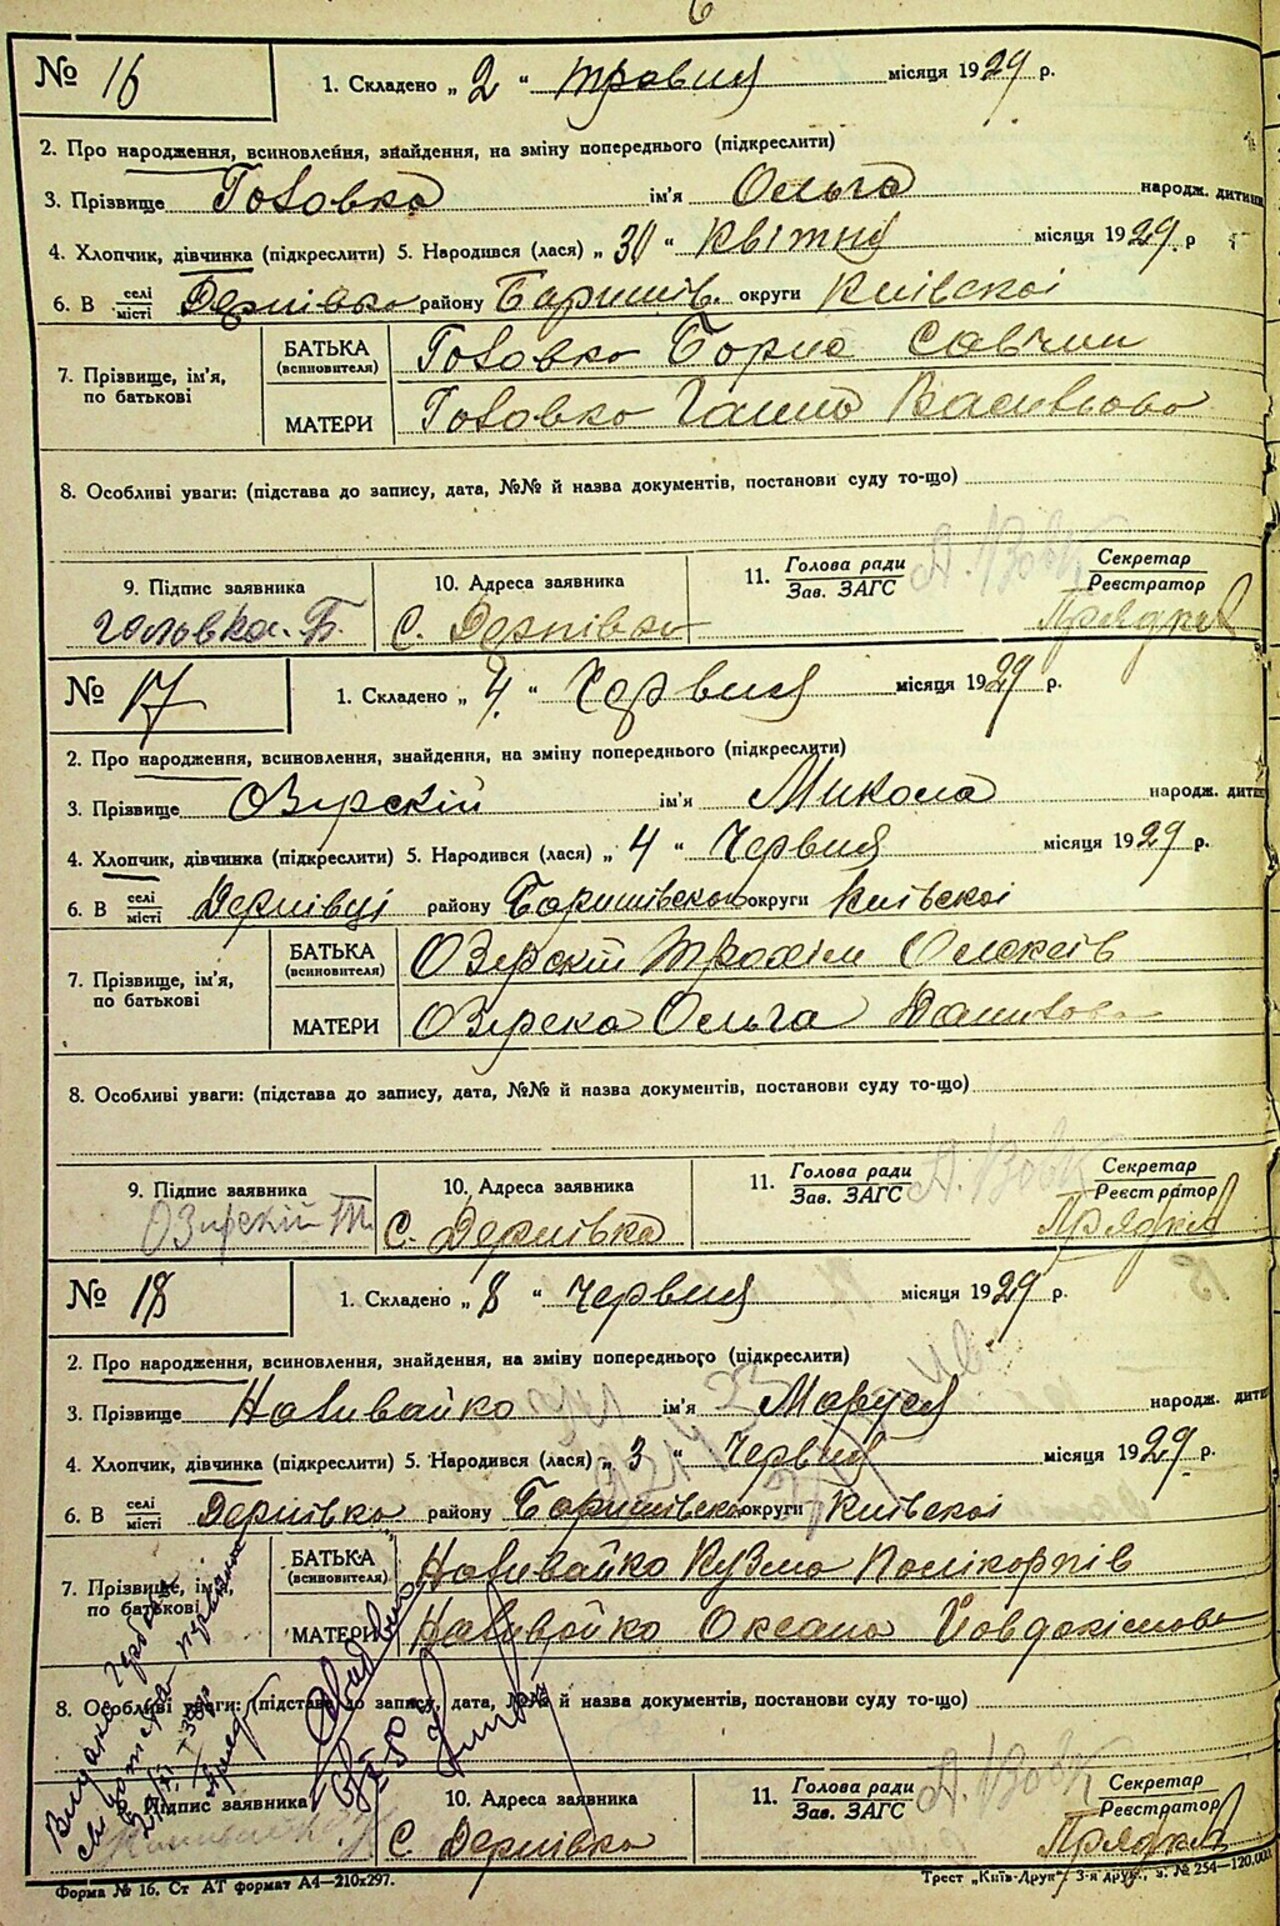 6
№ 16 1. Складено „ 2 “ травня місяця 1929 р.
2. Про народження, всиновлення, знайдення, на зміну попереднього (підкреслити)
3. Прізвище Головко ім'я Ольга народж. дитини
4. Хлопчик, дівчинка (підкреслити) 5. Народився (лася) „ 30 “ Квітня місяця 1929. р
6. В селі місті Дернівка району Баришів. округи Київскоі
7. Прізвище, ім'я, по батькові
БАТЬКА (всиновителя) Головко Борис Савічин
МАТЕРИ Головко Ганна Васильова
8. Особливі уваги: (підстава до запису, дата, №№ й назва документів, постанови суду то-що)
9. Підпис заявника 10. Адреса заявника 11. Голова ради Зав. ЗАГС А. Вовк Секретар Реєстратор
гольвка. Б. С. Дернівка
№ 17 1. Складено „ 4. “ Червня місяця 1929 р.
2. Про народження, всиновлення, знайдення, на зміну попереднього (підкреслити)
3. Прізвище Озерскій ім'я Микола народж. дити
4. Хлопчик, дівчинка (підкреслити) 5. Народився (лася) „ 4 “ Червня місяця 1929 р.
6. В селі місті Дернівці району Баришівскоі округи Київскоі
7. Прізвище, ім'я, по батькові
БАТЬКА (всиновителя) Озерскій Трохім Олексіів
МАТЕРИ Озерска Ольга Данилова
8. Особливі уваги: (підстава до запису, дата, №№ й назва документів, постанови суду то-що)
9. Підпис заявника 10. Адреса заявника 11. Голова ради Зав. ЗАГС А. Вовк Секретар Реєстратор
Озирскій Т. С. Дернівка
№ 18 1. Складено „ 8 “ Червня місяця 1929 р.
2. Про народження, всиновлення, знайдення, на зміну попереднього (підкреслити)
3. Прізвище Наливайко ім'я Маруся народж. дити
4. Хлопчик, дівчинка (підкреслити) 5. Народився (лася) „ 3 “ Червня місяця 1929. р.
6. В селі місті Дернівка району Баришівскоі округи Київскоі
7. Прізвище, ім'я, по батькові
БАТЬКА (всиновителя) Наливайко Кузма Полікорпів
МАТЕРИ Наливайко Оксана Йовдокімова
8. Особливі уваги: (підстава до запису, дата, №№ й назва документів, постанови суду то-що)
9. Підпис заявника 10. Адреса заявника 11. Голова ради Зав. ЗАГС А. Вовк Секретар Реєстратор
С. Дернівка
Форма № 16. Ст АТ формат А4—210х297. Трест „Київ-Друк“, 3-я друк., з. № 254—120.000